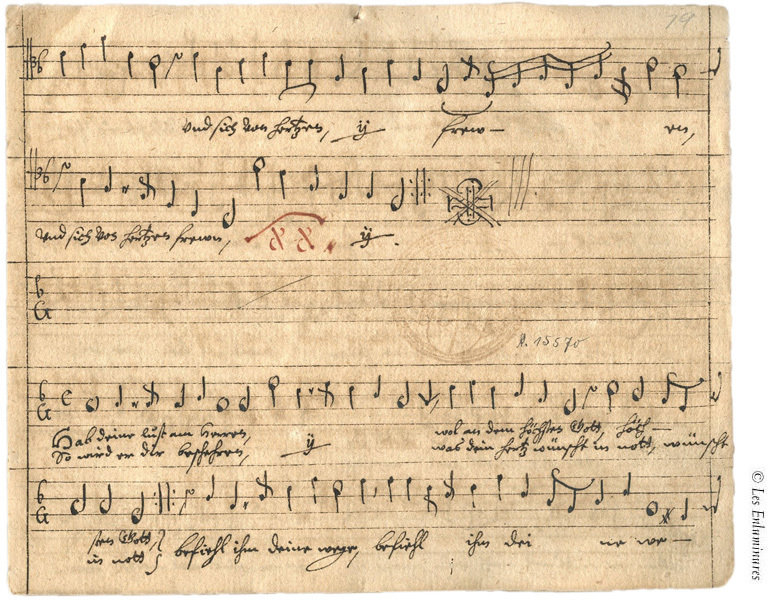 79
vnd sich von hertzen, ij frew – en,
vnd sich von hertzen frewen, ij.
A. 15570
Hab deine lust am Herren, ij wol an dem höchsten Gott, höch –
So wird er dir bescheren, was dein hertz wünscht in nott, wünscht
sten Gott, befiehl ihm deine wege, befiehl ihm dei ne we –
in nott
© Les Enluminures